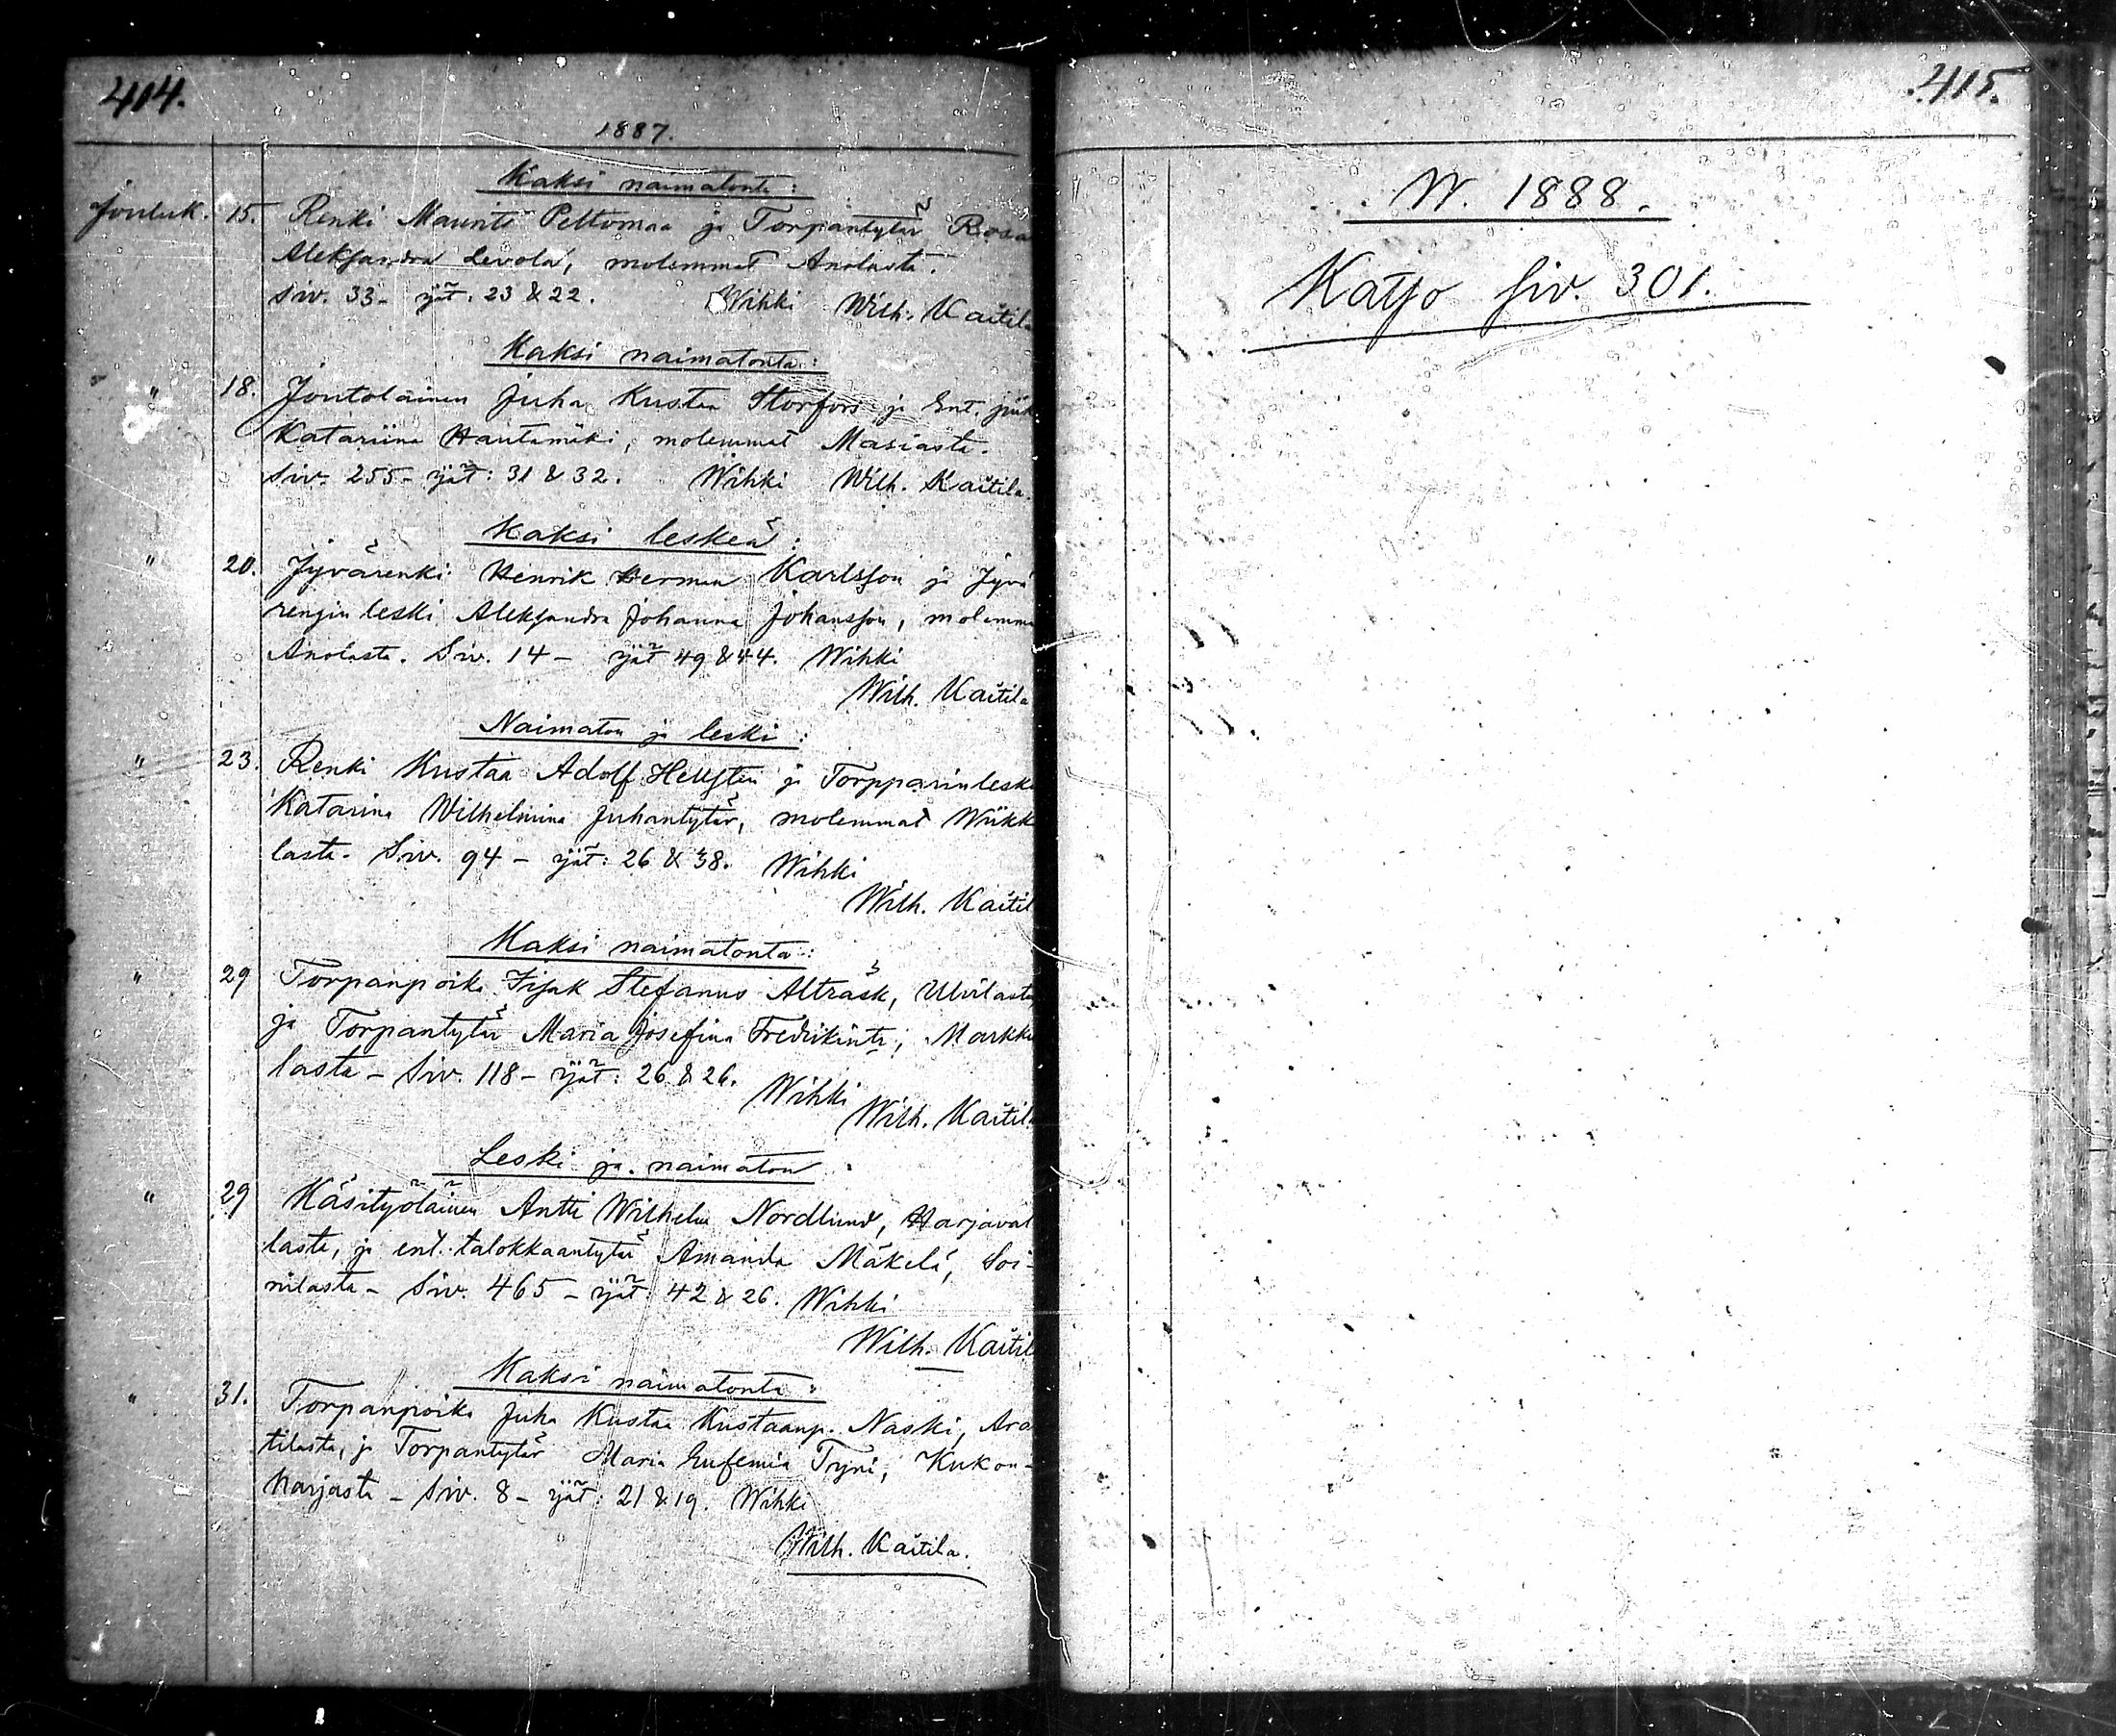 414.
1887.
Kaksi naimatonta:
Jouluk. 15. Renki Maurits Peltomaa ja Torpantytär Rosa
Aleksandra Levola, molemmat Anolasta.
Siv. 33 – ijät: 23 & 22. Wihki Wilh. Kaitila
Kaksi naimatonta:
" 18. Joutolainen Juha Kustaa Storfors ja Ent. piik
Katariina Hautamäki, molemmat Masiasta.
Siv. 255 – ijät: 31 & 32. Wihki Wilh. Kaitila.
Kaksi leskeä:
" 20. Jyvärenki Henrik Herman Karlsson ja Jyvä
rengin leski Aleksandra Johanna Johansson, molemma
Anolasta. Siv. 14 – ijät 49 & 44. Wihki
Wilh. Kaitila
Naimaton ja leski:
" 23. Renki Kustaa Adolf Hellsten ja Torpparinlesk
Katarina Wilhelmina Juhantytär, molemmat Wiikk
lasta. Siv. 94 – ijät: 26 & 38. Wihki
Wilh. Kaitil
Kaksi naimatonta:
" 29 Torpanpoika Iisak Stefanus Alträsk, Ulvilasta,
ja Torpantytär Maria Josefina Fredrikintr, Markku
lasta – Siv. 118 – ijät: 26 & 26. Wihki
Wilh. Kaitila
Leski ja naimaton
" 29 Käsityöläinen Antti Wilhelm Nordlund, Harjaval
lasta, ja ent. talokkaantytär Amanda Mäkelä, Soi-
nilasta – Siv. 465 – ijät: 42 & 26. Wihki
Wilh. Kaitil
Kaksi naimatonta:
" 31. Torpanpoika Juha Kustaa Kustaanp. Naski, Ara
tilasta, ja Torpantytär Maria Eufemia Tryni, Kukon-
harjasta – Siv. 8 – ijät: 21 & 19. Wihki
Wilh. Kaitila.
415.
W. 1888.
Katso siv. 301.